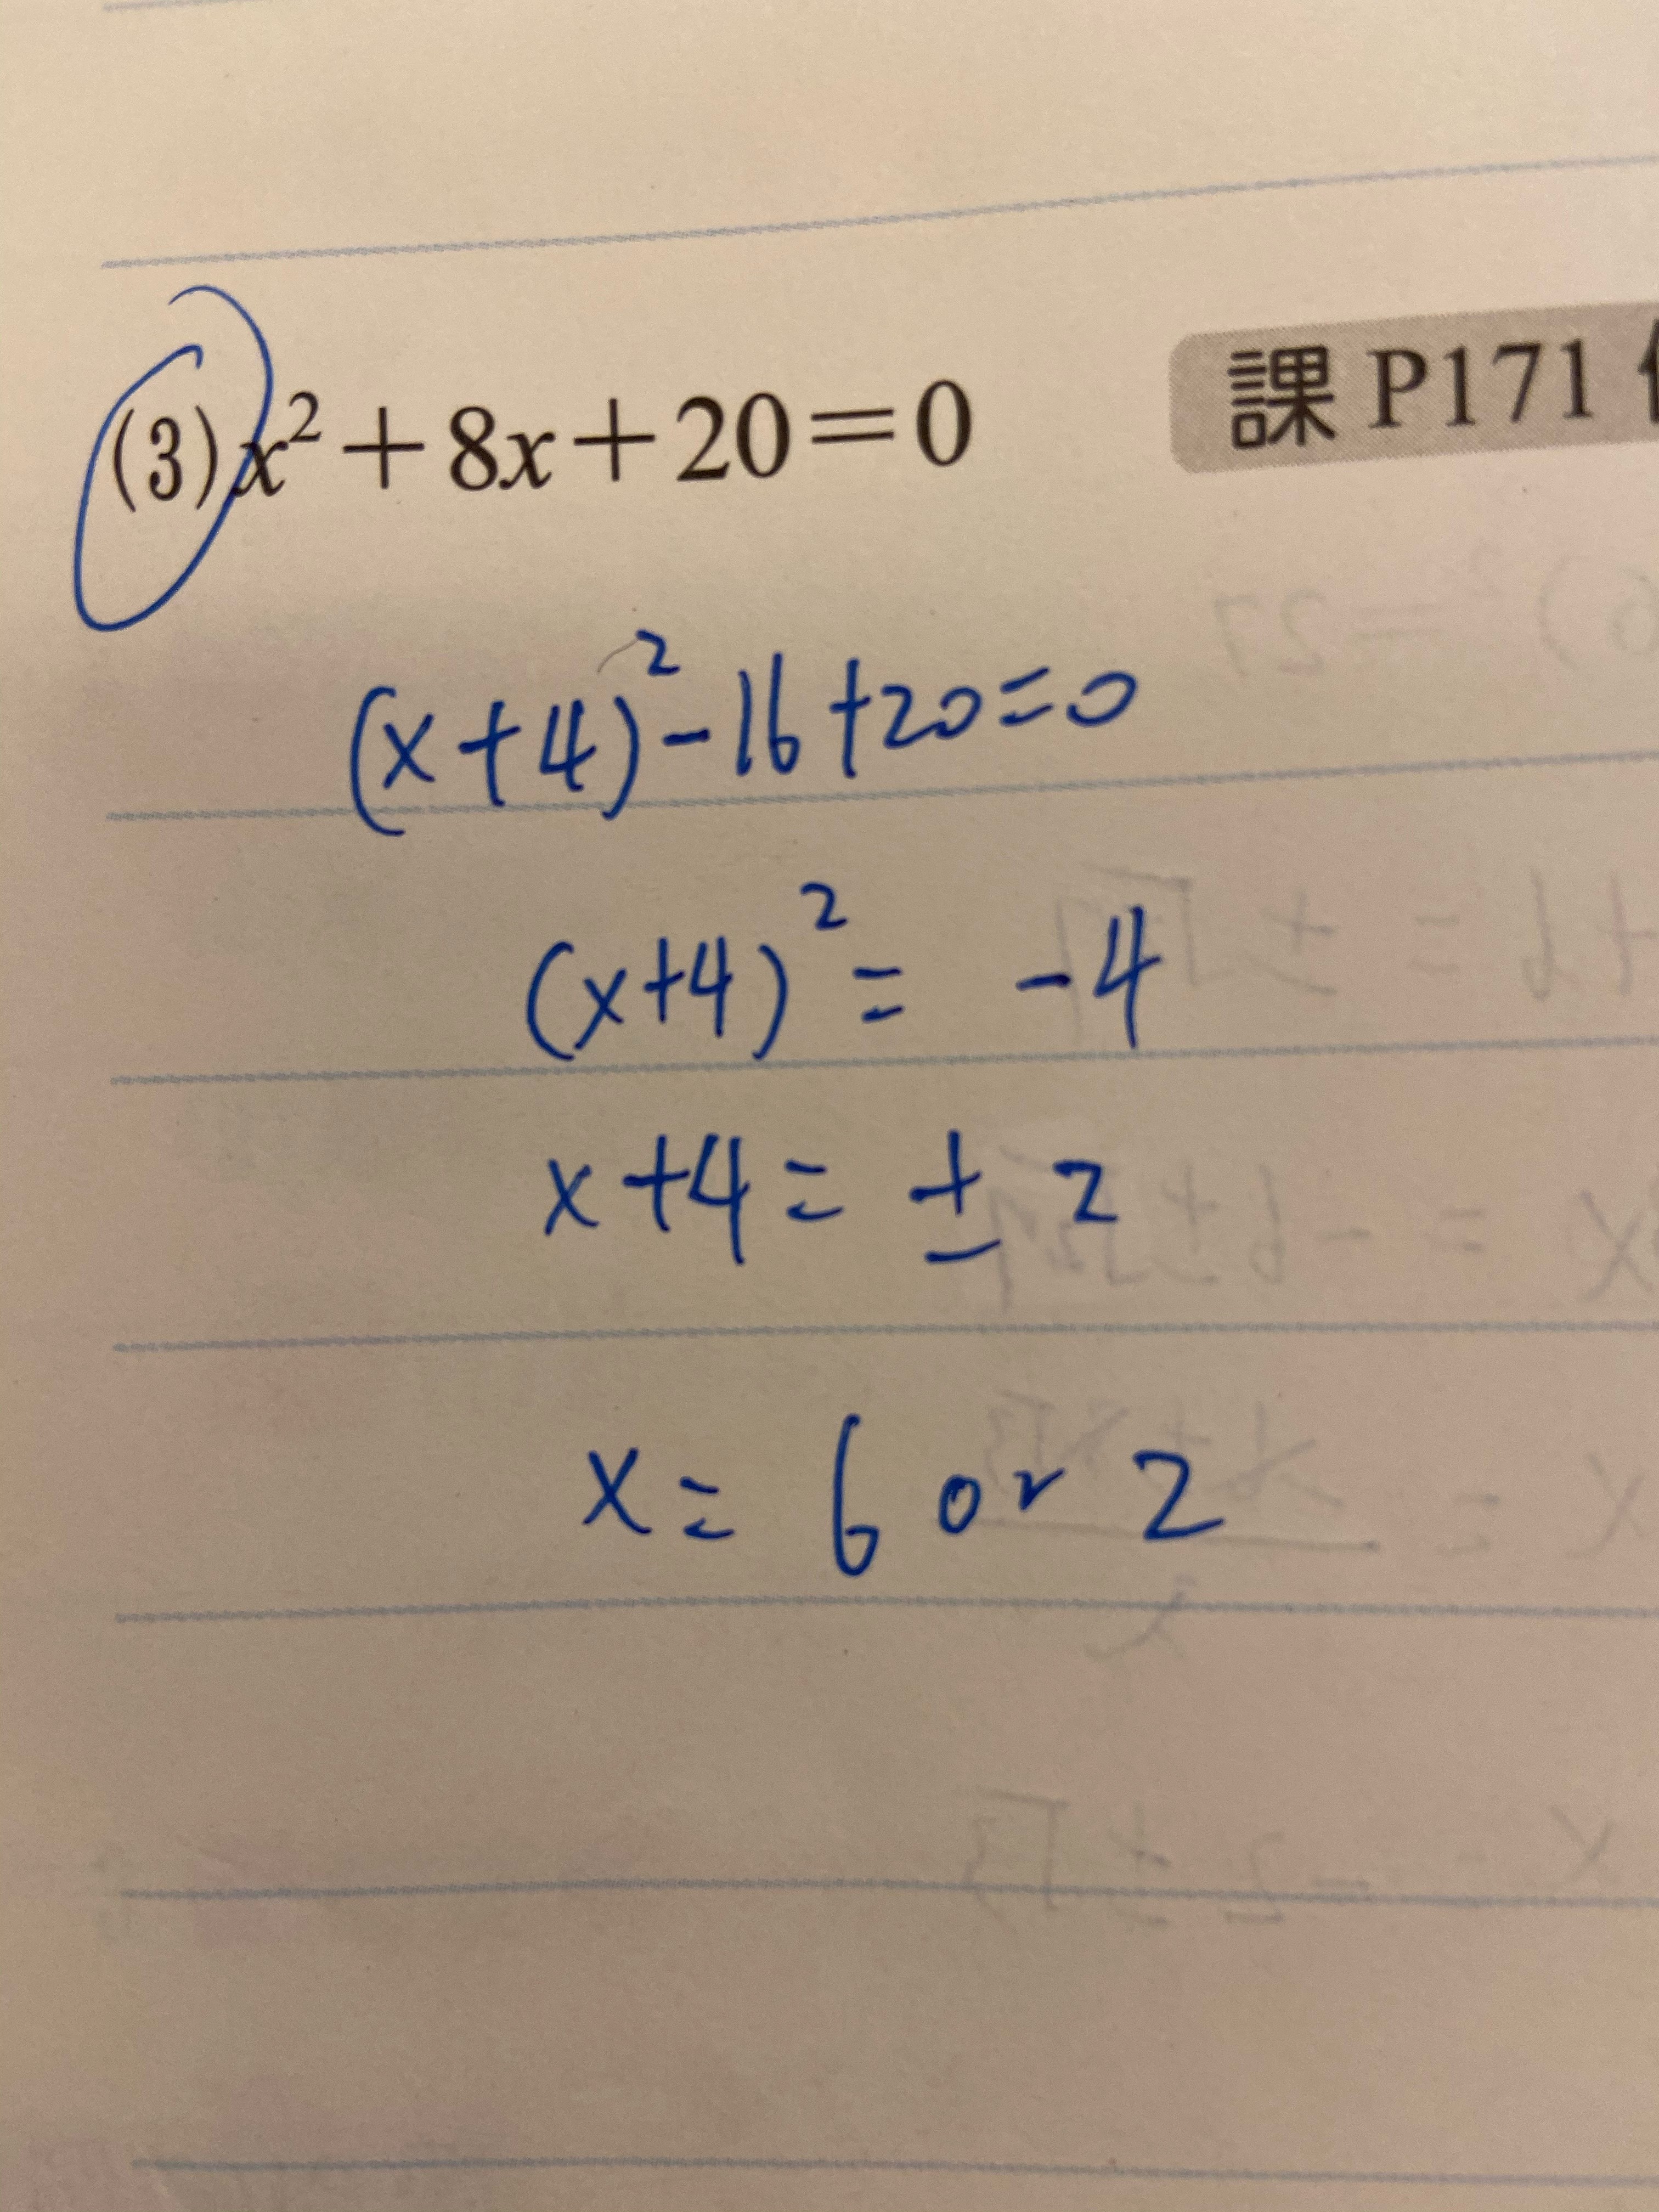 (3) x² + 8x + 20 = 0 課 P171
(x+4)² - 16 + 20 = 0
(x+4)² = -4
x+4 = ± 2
x = 6 or 2